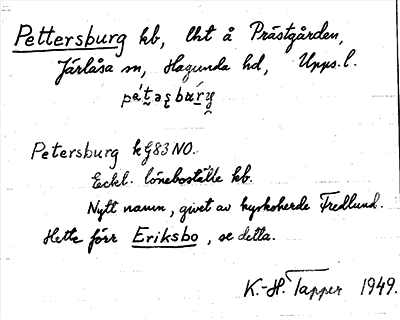 Pettersburg kb, lht å Prästgården,
Järlåsa sn, Hagunda hd, Upps. l.
Petersburg kG83NO.
Eckl. löneboställe kb.
Nytt namn, givet av kyrkoherde Fredlund.
Hette förr Eriksbo, se detta.
K.-H. Tapper 1949.